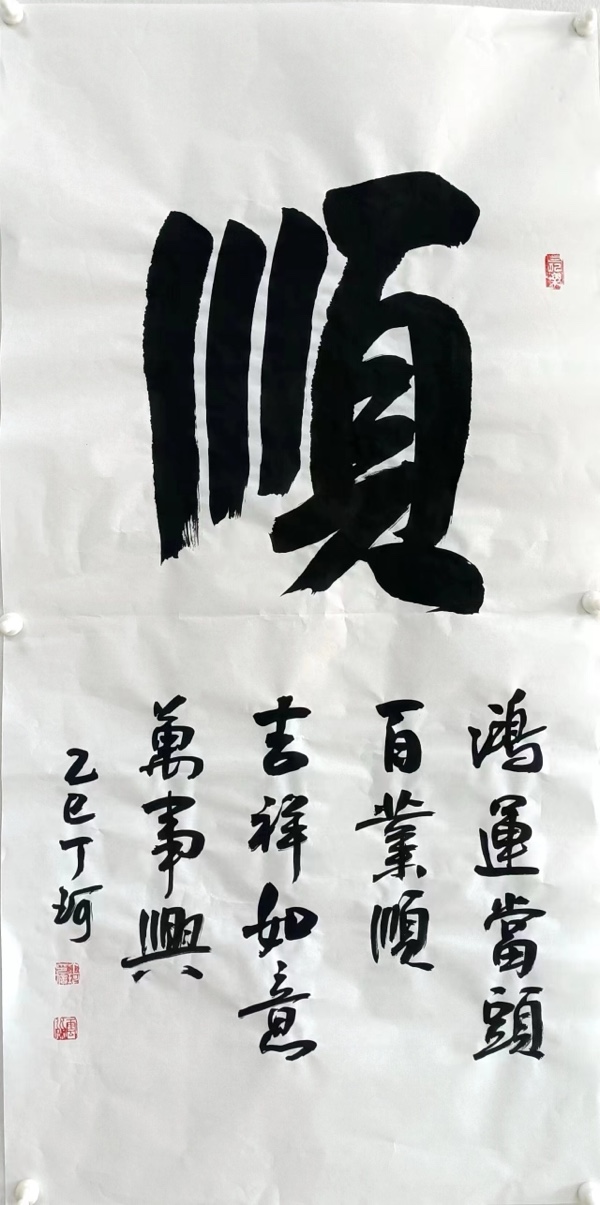 順
鴻運當頭
百業順
吉祥如意
萬事興
乙巳丁珂